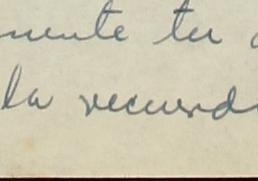 mente tu
la recuerd